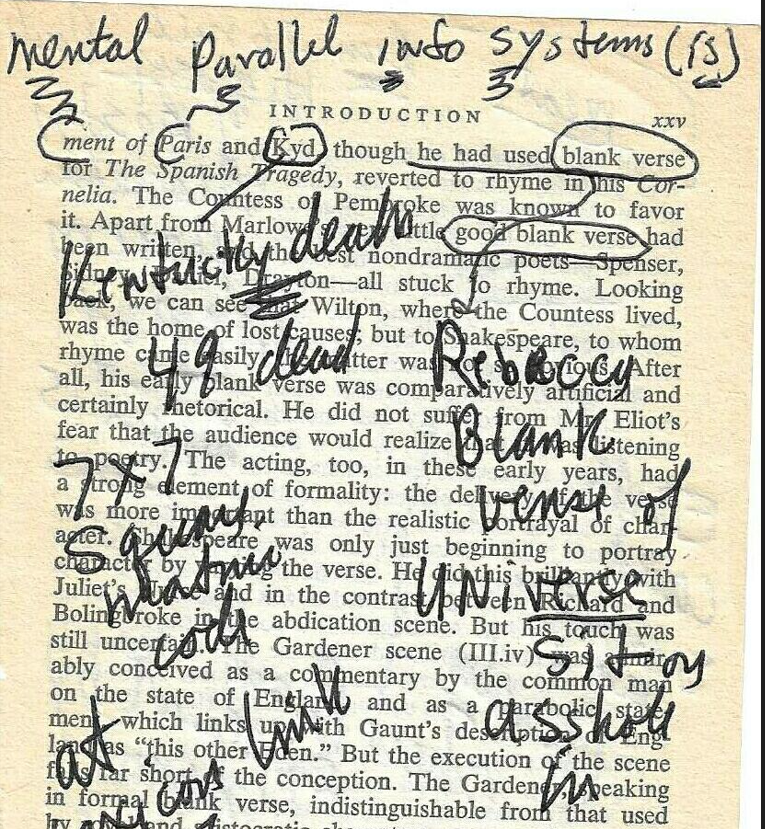 mental parallel info systems (is)
INTRODUCTION xxv
ment of Paris and Kyd, though he had used blank verse
for The Spanish Tragedy, reverted to rhyme in his Cor-
nelia. The Countess of Pembroke was known to favor
it. Apart from Marlowe little good blank verse had
been written, and the best nondramatic poets—Spenser,
Sidney, Daniel, Drayton—all stuck to rhyme. Looking
back, we can see that Wilton, where the Countess lived,
was the home of lost causes; but to Shakespeare, to whom
rhyme came easily, the matter was not so obvious. After
all, his early blank verse was comparatively artificial and
certainly rhetorical. He did not suffer from Mr. Eliot's
fear that the audience would realize that it was listening
to poetry. The acting, too, in these early years, had
a strong element of formality: the delivery of the verse
was more important than the realistic portrayal of char-
acter. Shakespeare was only just beginning to portray
character by varying the verse. He did this brilliantly with
Juliet's Nurse and in the contrast between Richard and
Bolingbroke in the abdication scene. But his touch was
still uncertain. The Gardener scene (III.iv) was admir-
ably conceived as a commentary by the common man
on the state of England and as a parabolic state-
ment which links up with Gaunt's description of Eng-
land as "this other Eden." But the execution of the scene
falls far short of the conception. The Gardener, speaking
in formal blank verse, indistinguishable from that used
by royal and aristocratic
Kentucky death
49 dead
7x7
square
matrix
code
at link
Rebeccy
Blank
verse of
UNiverse
sity
asshole
in